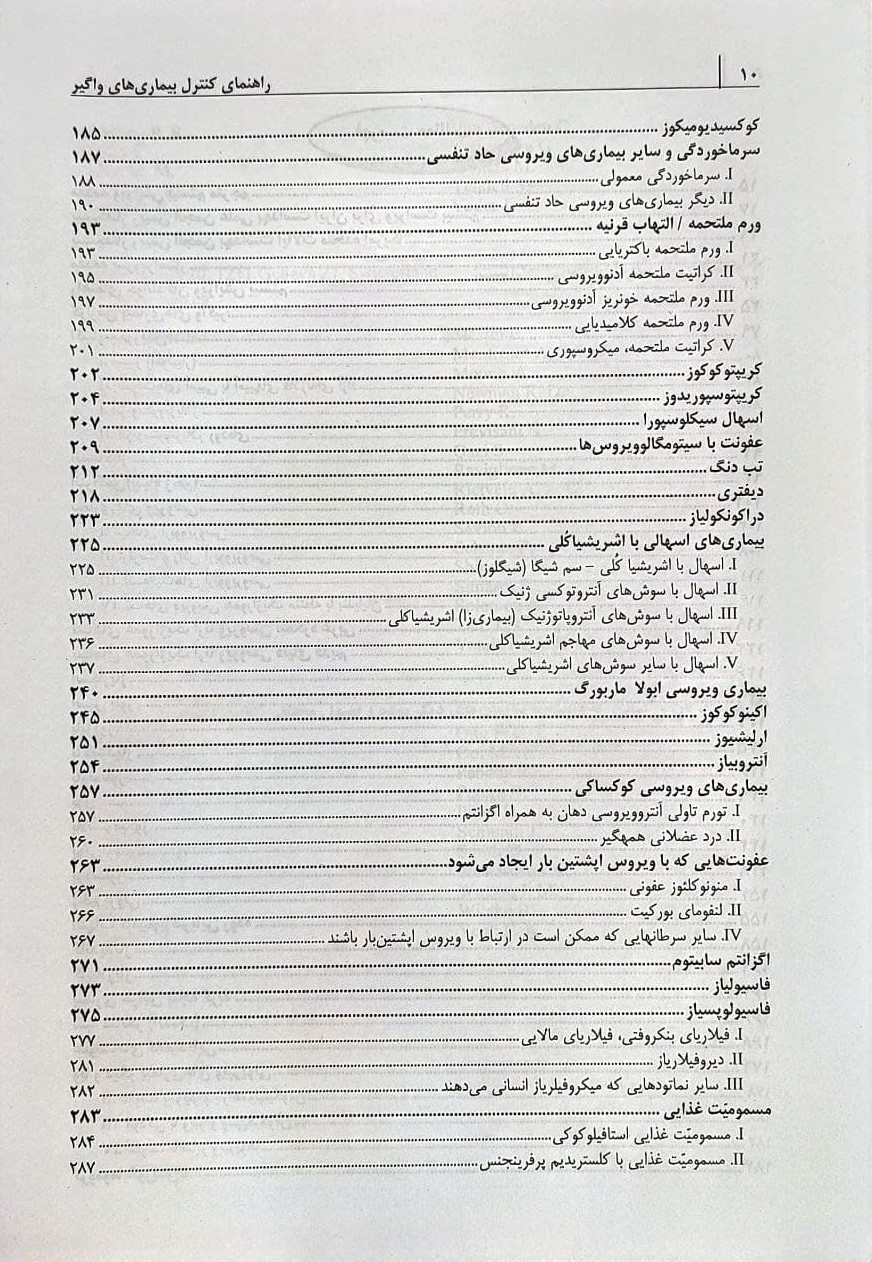 ۱۰
راهنمای کنترل بیماری‌های واگیر
کوکسیدیومیکوز ........ ۱۸۵
سرماخوردگی و سایر بیماری‌های ویروسی حاد تنفسی ........ ۱۸۷
I. سرماخوردگی معمولی ........ ۱۸۸
II. دیگر بیماری‌های ویروسی حاد تنفسی ........ ۱۹۰
ورم ملتحمه / التهاب قرنیه ........ ۱۹۳
I. ورم ملتحمه باکتریایی ........ ۱۹۳
II. کراتیت ملتحمه آدنوویروسی ........ ۱۹۵
III. ورم ملتحمه خونریز آدنوویروسی ........ ۱۹۷
IV. ورم ملتحمه کلامیدیایی ........ ۱۹۹
V. کراتیت ملتحمه، میکروسپوری ........ ۲۰۱
کریپتوکوکوز ........ ۲۰۲
کریپتوسپوریدوز ........ ۲۰۴
اسهال سیکلوسپورا ........ ۲۰۷
عفونت با سیتومگالوویروس‌ها ........ ۲۰۹
تب دنگ ........ ۲۱۲
دیفتری ........ ۲۱۸
دراکونکولیاز ........ ۲۲۳
بیماری‌های اسهالی با اشریشیاکُلی ........ ۲۲۵
I. اسهال با اشریشیا کُلی – سم شیگا (شیگلوز) ........ ۲۲۵
II. اسهال با سوش‌های آنتروتوکسی ژنیک ........ ۲۳۱
III. اسهال با سوش‌های آنتروپاتوژنیک (بیماری‌زا) اشریشیاکلی ........ ۲۳۳
VI. اسهال با سوش‌های مهاجم اشریشیاکلی ........ ۲۳۶
V. اسهال با سایر سوش‌های اشریشیاکلی ........ ۲۳۷
بیماری ویروسی ابولا ماربورگ ........ ۲۴۰
اکینوکوکوز ........ ۲۴۵
ارلیشیوز ........ ۲۵۱
آنتروبیاز ........ ۲۵۴
بیماری‌های ویروسی کوکساکی ........ ۲۵۷
I. تورم تاولی آنتروویروسی دهان به همراه اگزانتم ........ ۲۵۷
II. درد عضلانی همهگیر ........ ۲۶۰
عفونت‌هایی که با ویروس اپشتین بار ایجاد می‌شود ........ ۲۶۳
I. منونوکلئوز عفونی ........ ۲۶۳
II. لنفومای بورکیت ........ ۲۶۶
VI. سایر سرطانهایی که ممکن است در ارتباط با ویروس اپشتین‌بار باشند ........ ۲۶۷
اگزانتم سابیتوم ........ ۲۷۱
فاسیولیاز ........ ۲۷۳
فاسیولوپسیاز ........ ۲۷۵
I. فیلاریای بنکروفتی، فیلاریای مالایی ........ ۲۷۷
II. دیروفیلاریاز ........ ۲۸۱
III. سایر نماتودهایی که میکروفیلریاز انسانی می‌دهند ........ ۲۸۲
مسمومیّت غذایی ........ ۲۸۳
I. مسمومیّت غذایی استافیلوکوکی ........ ۲۸۴
II. مسمومیّت غذایی با کلستریدیم پرفرینجنس ........ ۲۸۷